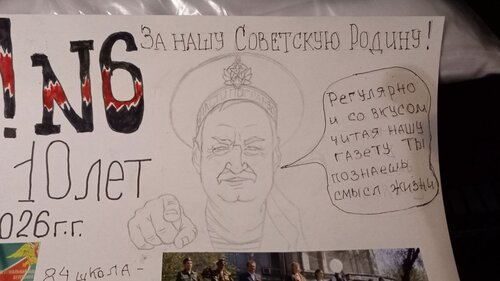 ! №6
За нашу Советскую Родину!
Регулярно
и со вкусом
читая нашу
газету ты
познаешь
смысл жизни
10 лет
026 г.г.
84 школа -